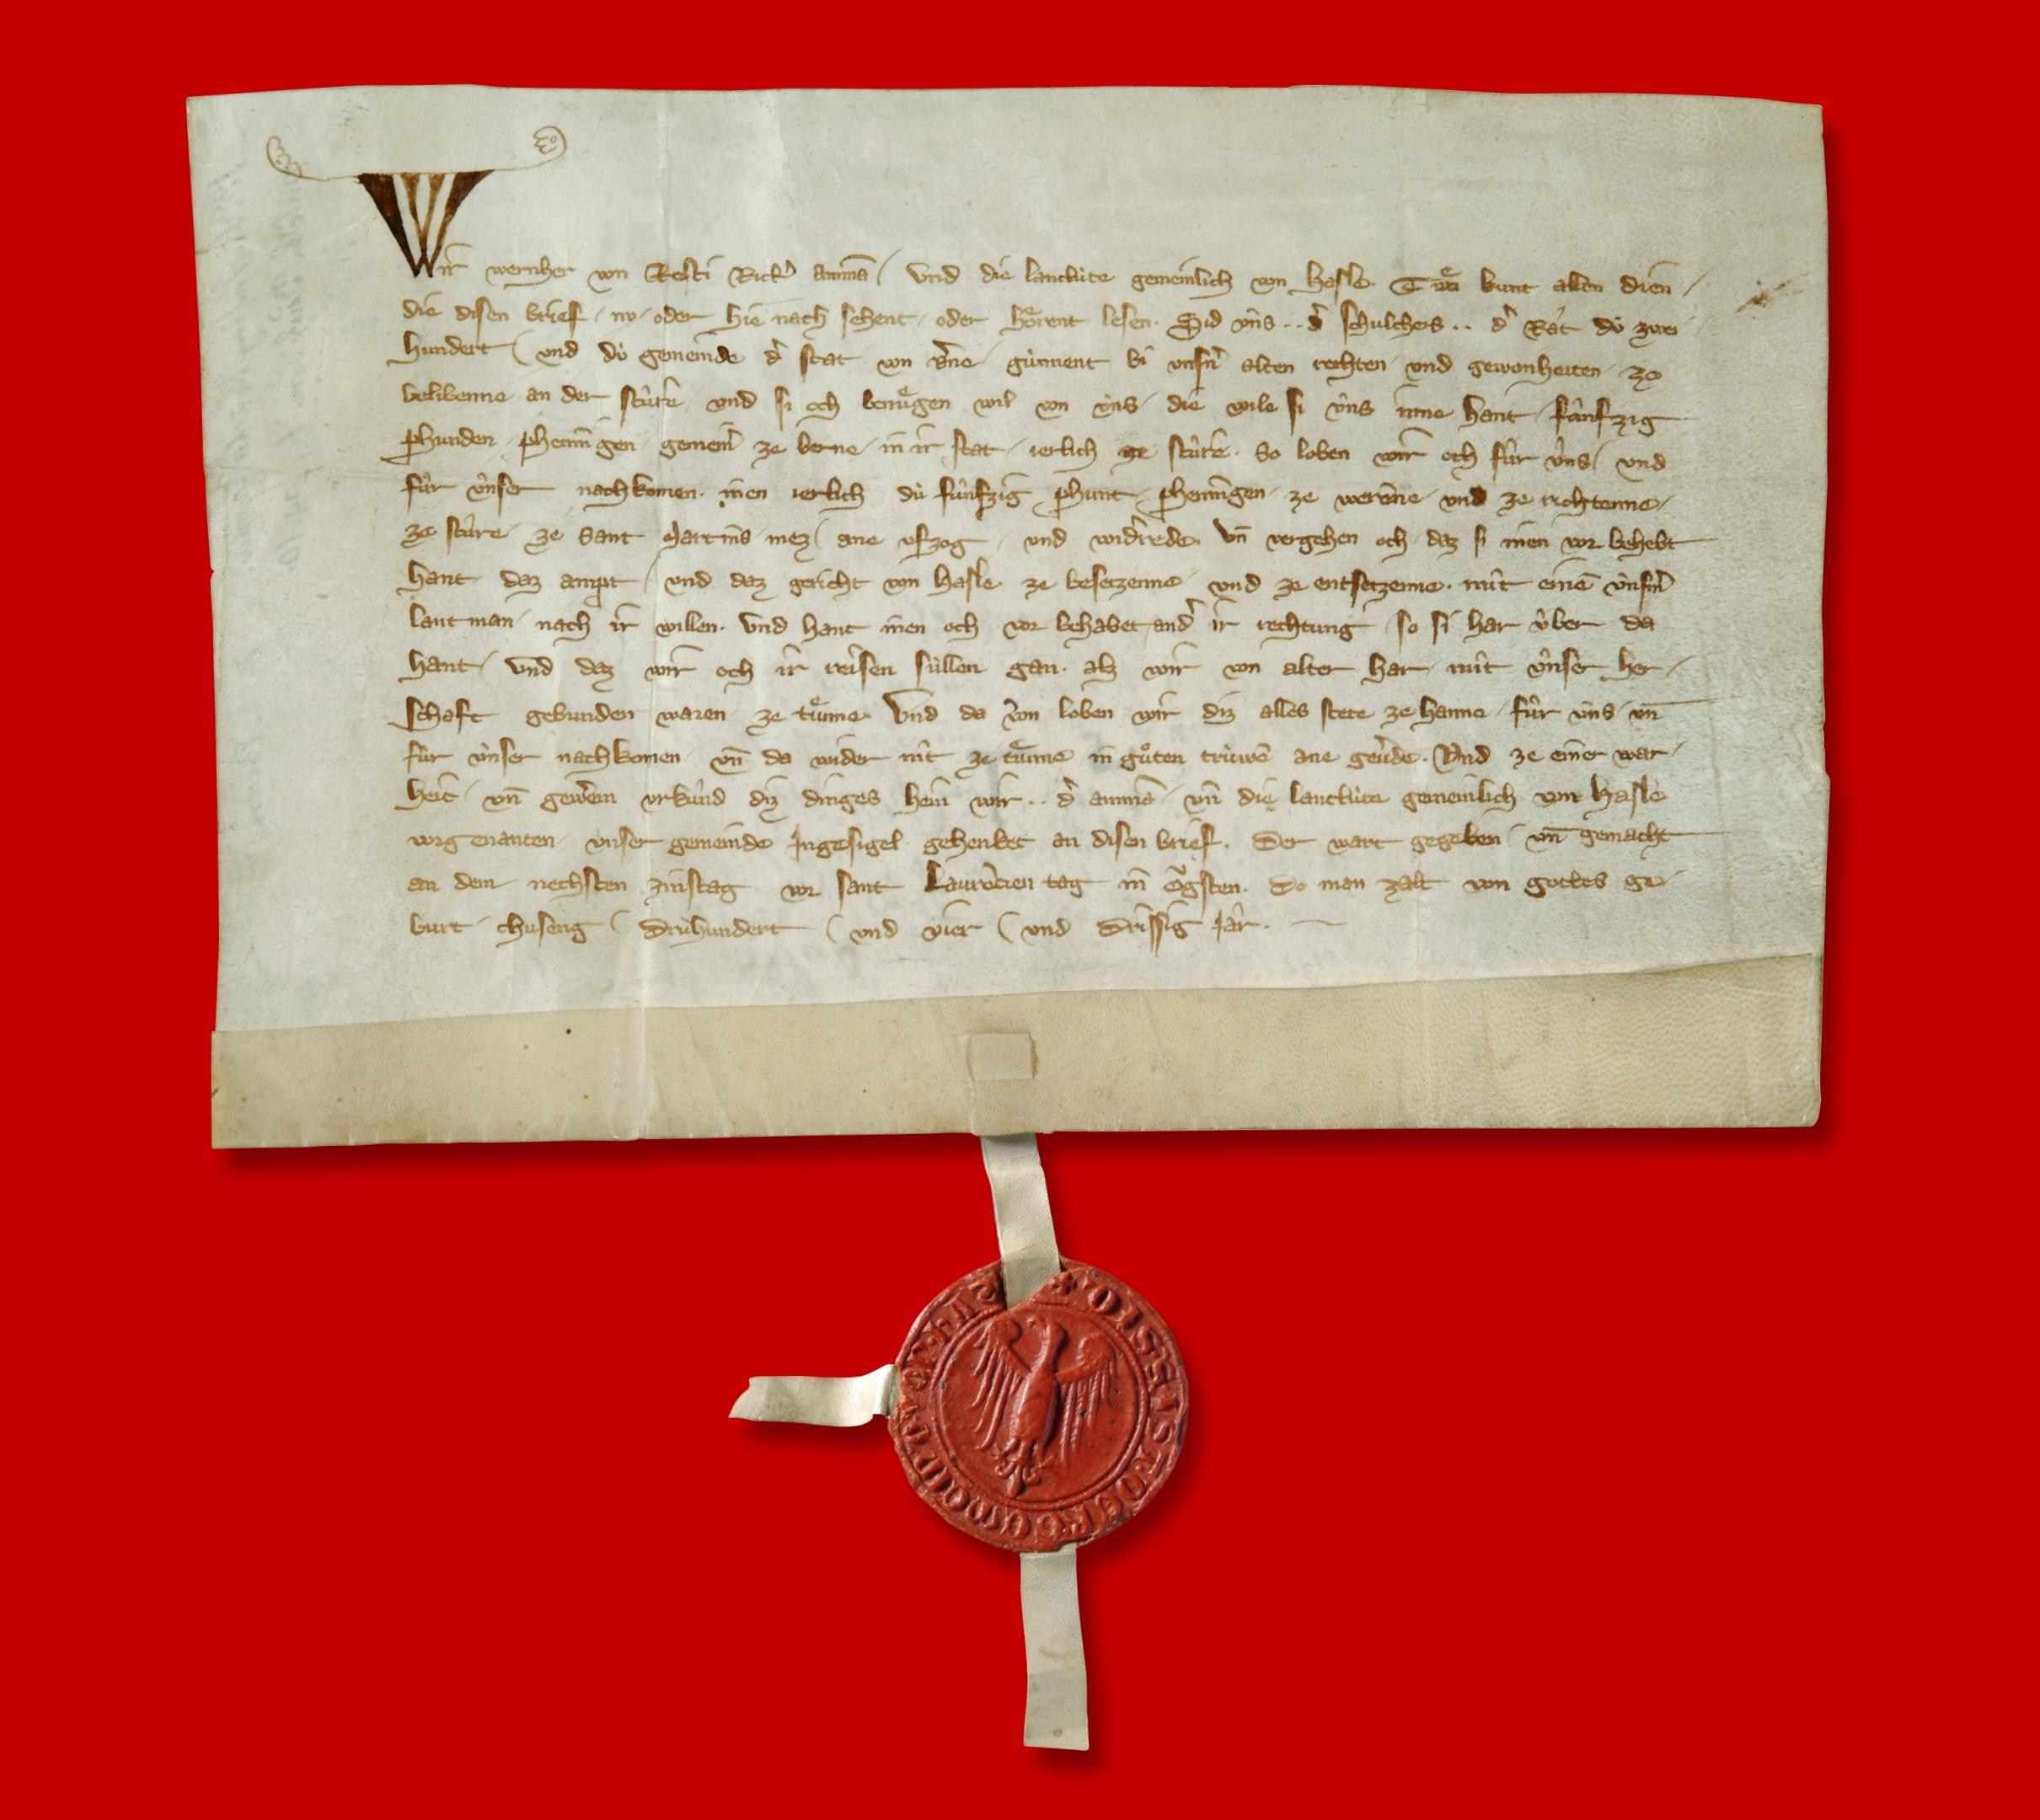 Wir wernher von Resti Ritt͛ ammā / Und die lantlúte gemeinlich von Hasle. Tuͤn kunt allen dien /
die disen brief / nv / oder hie nach sehent / oder hoͤrent lesen. Sid v́ns .. d͛ schultheis .. d͛ Rat dú zwei
hundert / vnd dú gemeinde d͛ stat von B͛ne / gúnnent bi vnsrn͛ alten rechten / vnd gewonheiten / ze
belibenne an der stúre / vnd si och benuͤgen wil von v́ns / die wile si v́ns inne hant / fúnfzig
phunden / phenningen / gemein͛ ze berne / in ir stat / ierlich ze stúre. So loben wir och fúr v́ns / vnd
fúr v́nser nachkomen. inen ierlich dú fúnfzig phunt / phenningen / ze werēne / vnd ze richtenne /
ze stúre / ze Sant Martins / mez / ane vfzog / vnd wid͛rede. Vn̄ vergehen och / daz si inen vor behebt
hant / daz ampt / vnd daz gericht von Hasle ze besetzenne / vnd ze entsetzenne. mit einē v́nsrm͛
lantman / nach ir willen. Und hant inen och vor behabet / and͛ ir rechtung / so si har v́ber da
hant / Und daz wir och ir reisen súllen gan. alz wir von alter har / mit v́nser her /
schaft gebunden waren / ze tuͤnne. Und da von loben wir diz alles stete ze hanne / fúr v́ns / vn̄
fúr v́nser nachkomen / vn̄ da wider nit ze tuͤnne in guͦten trúwē ane gev͛de. Vnd ze einer war /
heit / vn̄ gew͛em vrkúnd diz dinges hein wir .. d͛ ammā / vn̄ die lantlúte gemeinlich von Hasle
vorgenanten / vnser gemeinde Ingesigel / gehenket an disen brief. Der wart gegeben / vn̄ gemacht
an dem nechsten zinstag vor sant Laurēcien tag in oͮgsten. Do man zalt von gottes ge /
burt / thuseng / Drúhundert / vnd vier / vnd Drissig Jar.